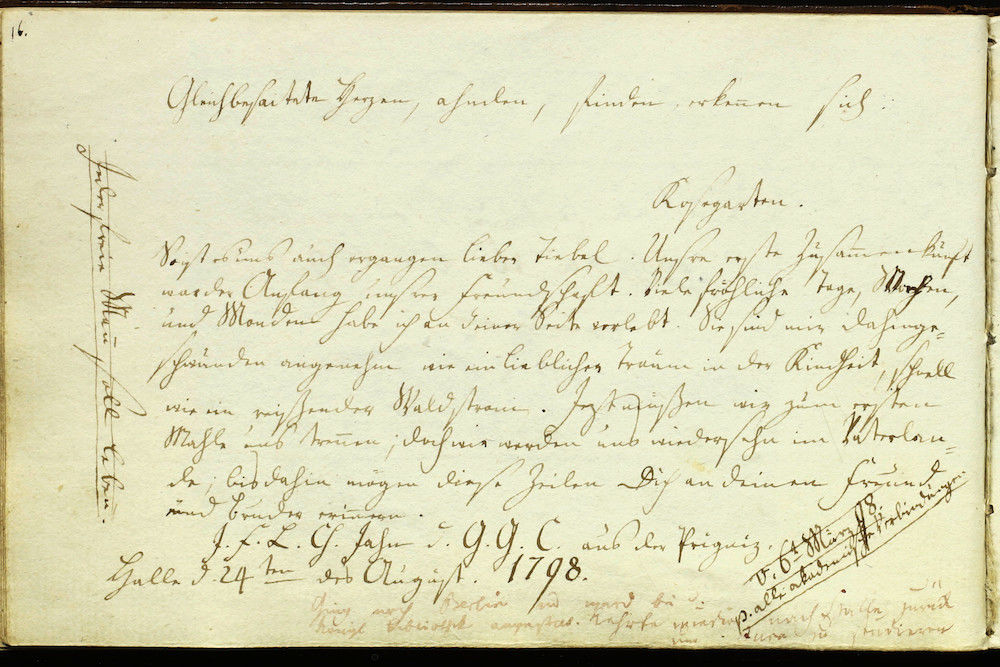 16.
Gleichbesaitete Herzen, ahnden, finden, erkennen sich.
Kosegarten.
So ist es uns auch ergangen lieber Tiebel. Unsre erste Zusammenkunft
war der Anfang unsrer Freundschaft. Viele fröhliche Tage, Wochen,
und Monden habe ich an deiner Seite verlebt. Sie sind mir dahinge-
schwunden angenehm wie ein lieblicher Traum in der Kindheit, schnell
wie ein reißender Waldstrom. Jezt müßen wir zum ersten
Mahle uns trennen; doch wir werden uns wiedersehn im Vaterlan-
de; bis dahin mögen diese Zeilen Dich an deinen Freund
und Bruder erinnern.
J. F. L. Ch. Jahn d. G. G. C. aus der Prigniz.
Halle d 24ten des August. 1798.
Jeder freie Mañ soll leben.
V. 6t März 98.
p. alle akademische Verbindungen
Ging nach Berlin und ward bei d.
Königl Bibliothek angestellt. Kehrte wieder nach Halle zurück
um Jura zu studieren